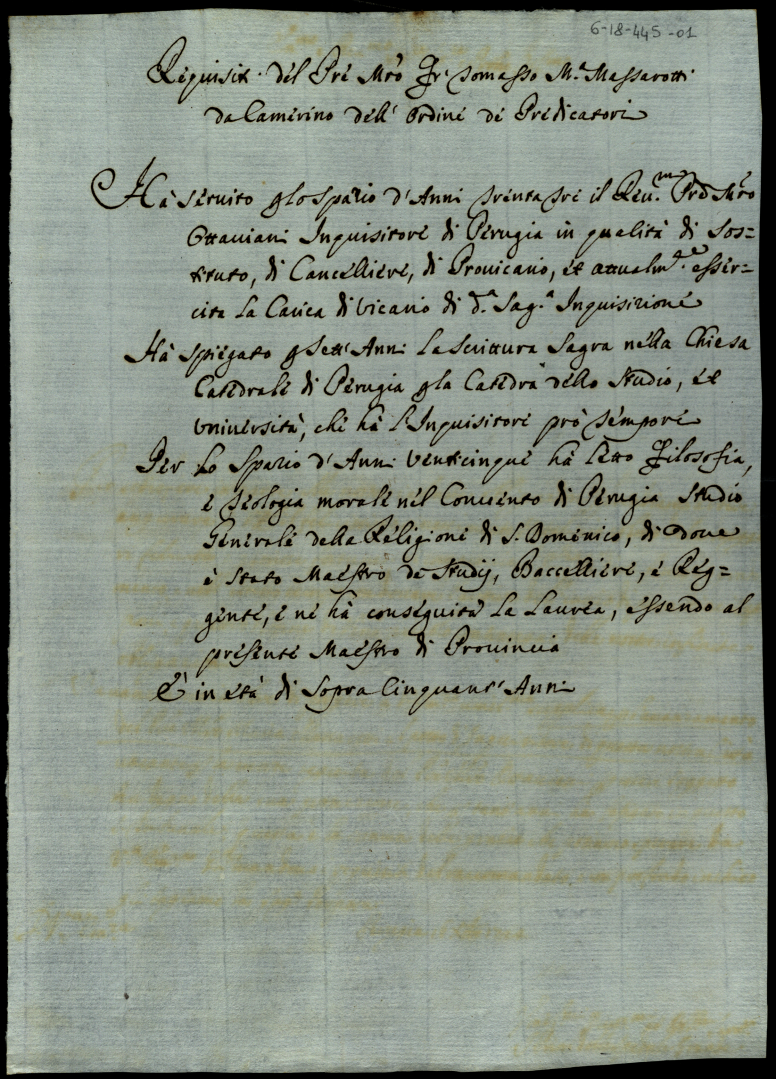 6-18-445-01
Requisiti del Pre Mro Fr Tomasso Ma Massarotti
da Camerino dell' Ordine de Predicatori
Hà servito p lo spazio d'Anni trenta tre il Reu.mo Pre Mro
Ottaviani Inquisitore di Perugia in qualità di Sos=
tituto, di Cancelliere, di Provicario, et attualm.te esser=
cita la Carica di vicario di d.a Sag.a Inquisizione
Hà spiegato p sett' Anni la Scrittura Sagra nella Chiesa
Catedrale di Perugia p la Catedra dello Studio, et
Università, che hà l'Inquisitore prò tempore
Per lo Spazio d'Anni venticinque hà letto Filosofia,
e Teologia morale nel Convento di Perugia Studio
Generale della Religione di S. Domenico, di dove
è stato Maestro de Studij, Baccelliere, e Reg=
gente, e ne hà conseguita la Laurea, essendo al
presente Maestro di Provincia
È in età di sopra Cinquant' Anni